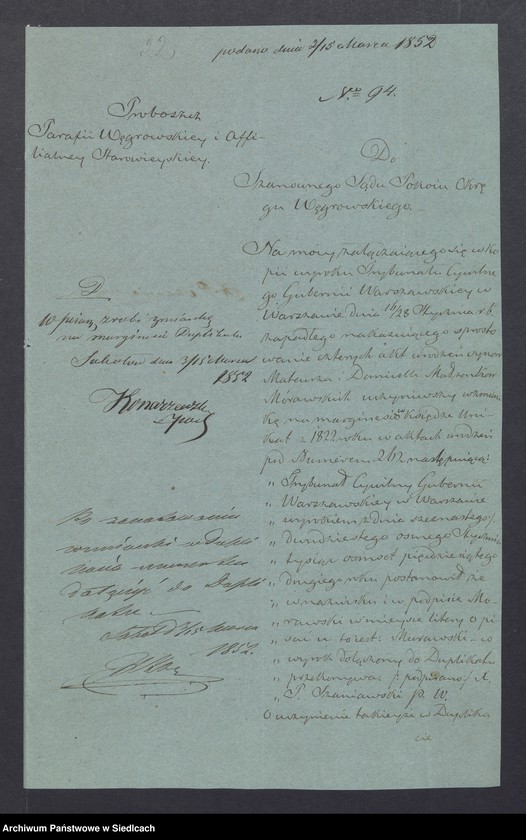 podano dnia 3/15 Marca 1852
No 94.
Proboszcz
Parafii Węgrowskiey i Affi-
lialney Starowieyskiey.
Do
Szanownego Sądu Pokoiu Okrę
gu Węgrowskiego.
Na mocy załączaiącego się w Ko
pii wyroku Trybunału Cywilne
go Gubernii Warszawskiey w
Warszawie dnia 16/28 Stycznia r.b.
zapadłego nakazuiącego sprosto
wanie czterech akt urodzeń synów
Mateusza i Domicelli Małżonków
Morawskich uczyniwszy wzmian
kę na marginesie w Księdze Uni-
kat z 1822 roku w aktach urodzeń
pod Numerem 262 następuiącą:
„ Trybunał Cywilny Gubernii
„ Warszawskiey w Warszawie
„ wyrokiem z dnia szesnastego/
„ dwudziestego osmego Stycznia
„ tysiąc osmset pięćdziesiątego
„ drugiego roku postanowił że
„ w nazwisku i w podpisie Mo-
„ rawski w mieysce litery o pi
„ sać u to iest: Murawski - co
„ wyrok dołączony do Duplikatu
„ przekonywa /: podpisano / X.
„ P. Szaniawski P. W.
O uczynienie takieyże w Duplika
cie
D
W pisarz zrobi wzmiankę
na marginesie Duplikatu
Sokołów dnia 3/15 Marca
1852
Konarzewski
Po zanotowaniu
wzmianki w Dupli
kacie
dołączyć do Dupli
katu
3/15 Marca
1852.